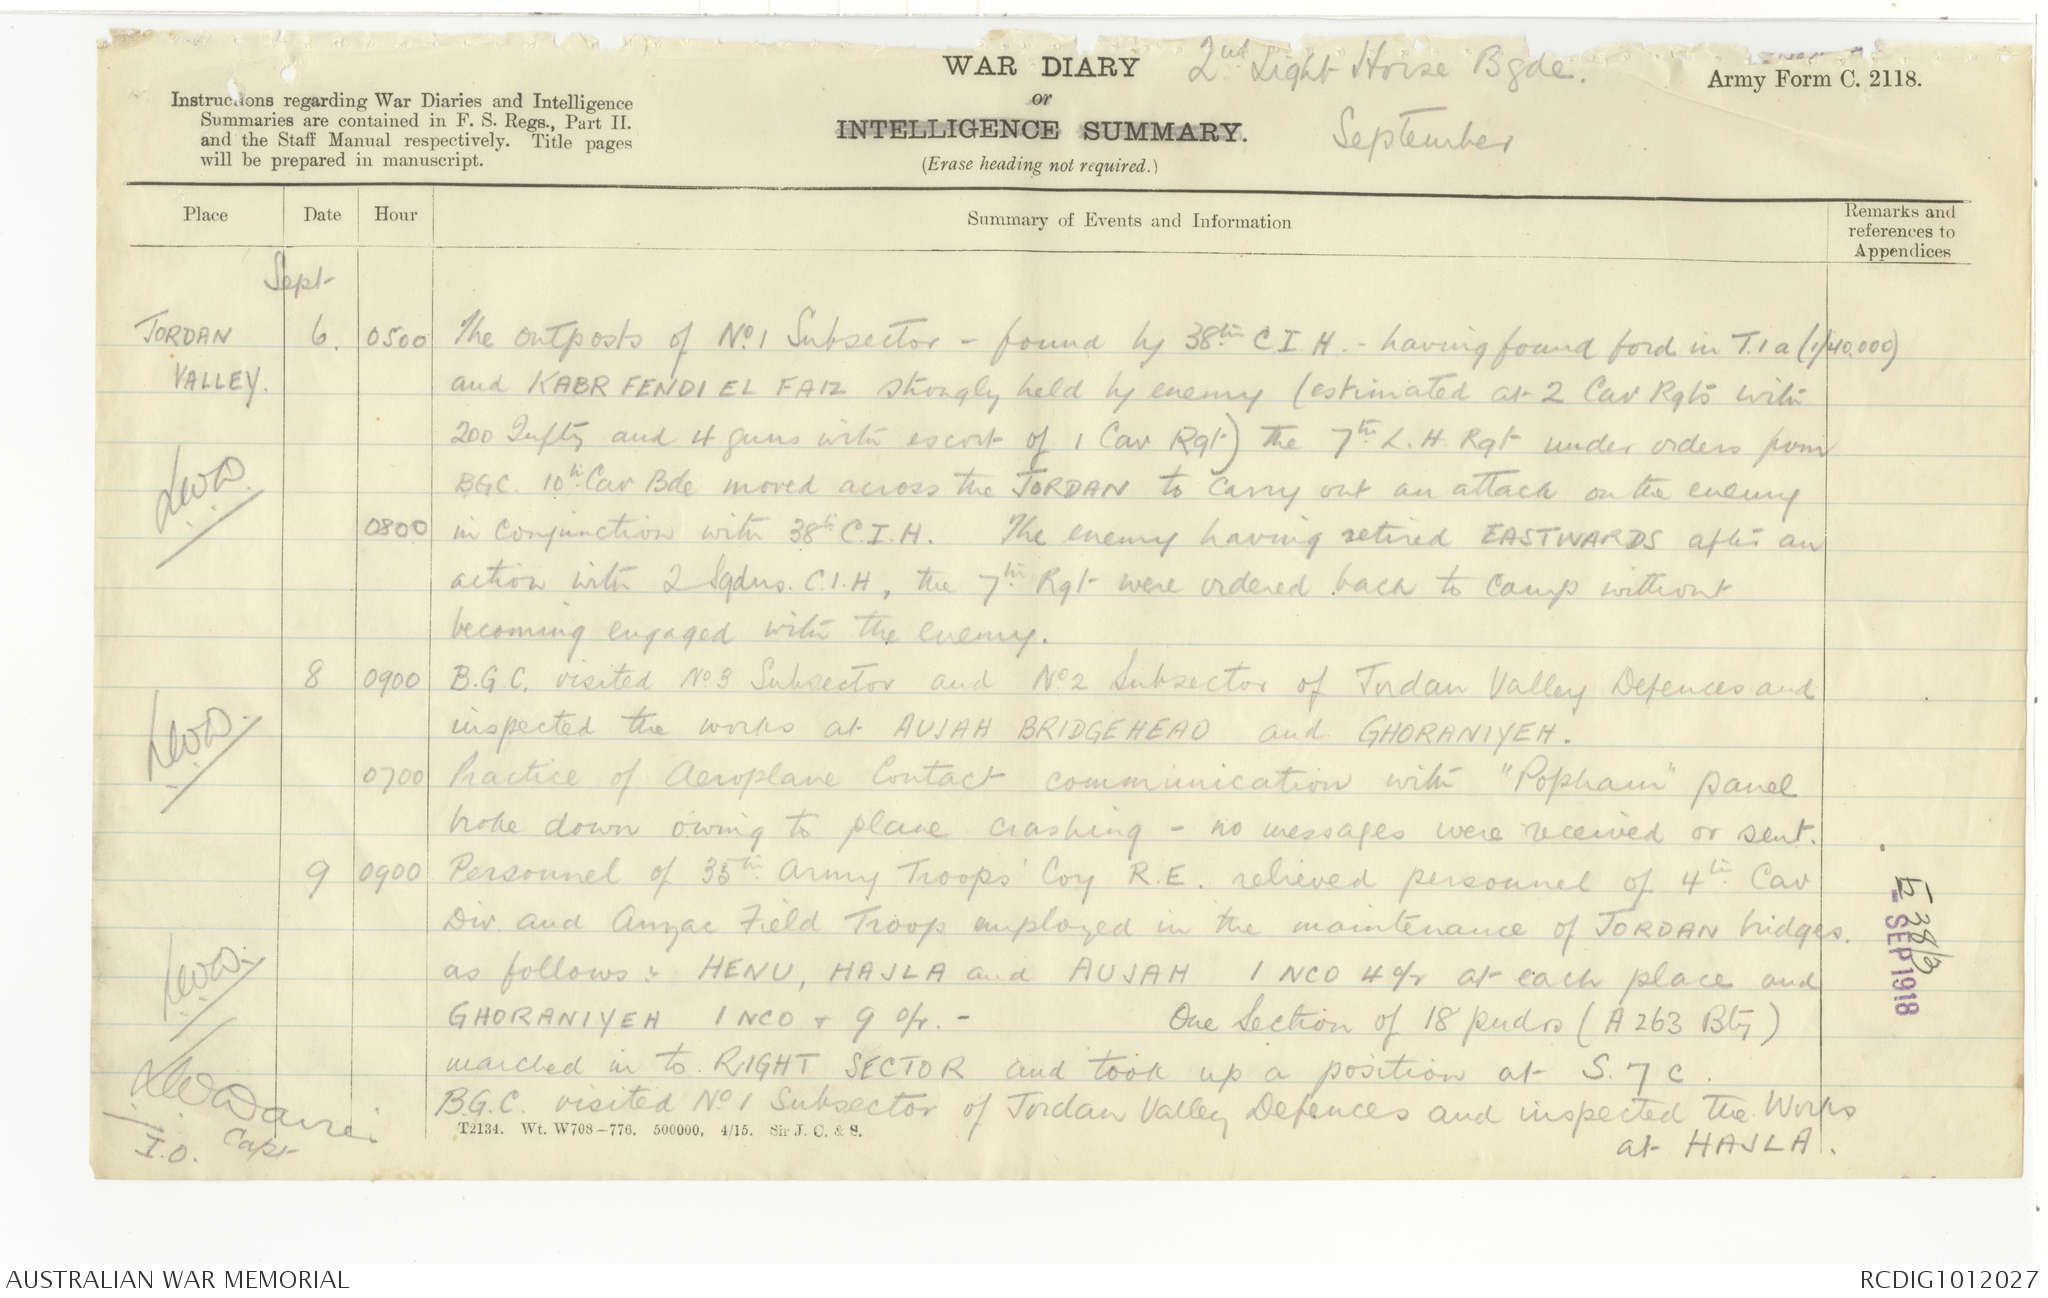 WAR DIARY
or
INTELLIGENCE SUMMARY.
(Erase heading not required.)
2nd Light Horse Bgde.
September
Army Form C. 2118.
Instructions regarding War Diaries and Intelligence
Summaries are contained in F. S. Regs., Part II.
and the Staff Manual respectively. Title pages
will be prepared in manuscript.
Place Date Hour Summary of Events and Information Remarks and
references to
Appendices
Sept
JORDAN 6. 0500 The outposts of No. 1 Subsector - found by 38th C.I.H. - having found ford in T.1a (1/40,000)
VALLEY. and KABR FENDI EL FAIZ strongly held by enemy (estimated at 2 Cav Rgts with
200 Infty and 4 guns with escort of 1 Cav Rgt) the 7th L.H. Rgt under orders from
BGC. 10th Cav Bde moved across the JORDAN to carry out an attack on the enemy
0800 in conjunction with 38th C.I.H. The enemy having retired EASTWARDS after an
action with 2 Sqdns. C.I.H, the 7th Rgt were ordered back to camp without
becoming engaged with the enemy.
8 0900 B.G.C. visited No 3 Subsector and No 2 Subsector of Jordan Valley Defences and
inspected the works at AUJAH BRIDGEHEAD and GHORANIYEH.
0700 Practice of Aeroplane Contact communication with "Popham" panel
broke down owing to plane crashing - no messages were received or sent.
9 0900 Personnel of 35th Army Troops' Coy R.E. relieved personnel of 4th Cav
Div. and Anzac Field Troop employed in the maintenance of JORDAN bridges.
as follows:- HENU, HAJLA and AUJAH 1 NCO 4 o/r at each place and
GHORANIYEH 1 NCO + 9 o/r. - One Section of 18 pndrs (A 263 Bty)
marched in to RIGHT SECTOR and took up a position at S. 7 c.
B.G.C. visited No 1 Subsector of Jordan Valley Defences and inspected the Works
at HAJLA.
Capt
I.O.
T2134. Wt. W708-776. 500000. 4/15. Sir J. C. & S.
SEP 1918
AUSTRALIAN WAR MEMORIAL
RCDIG1012027